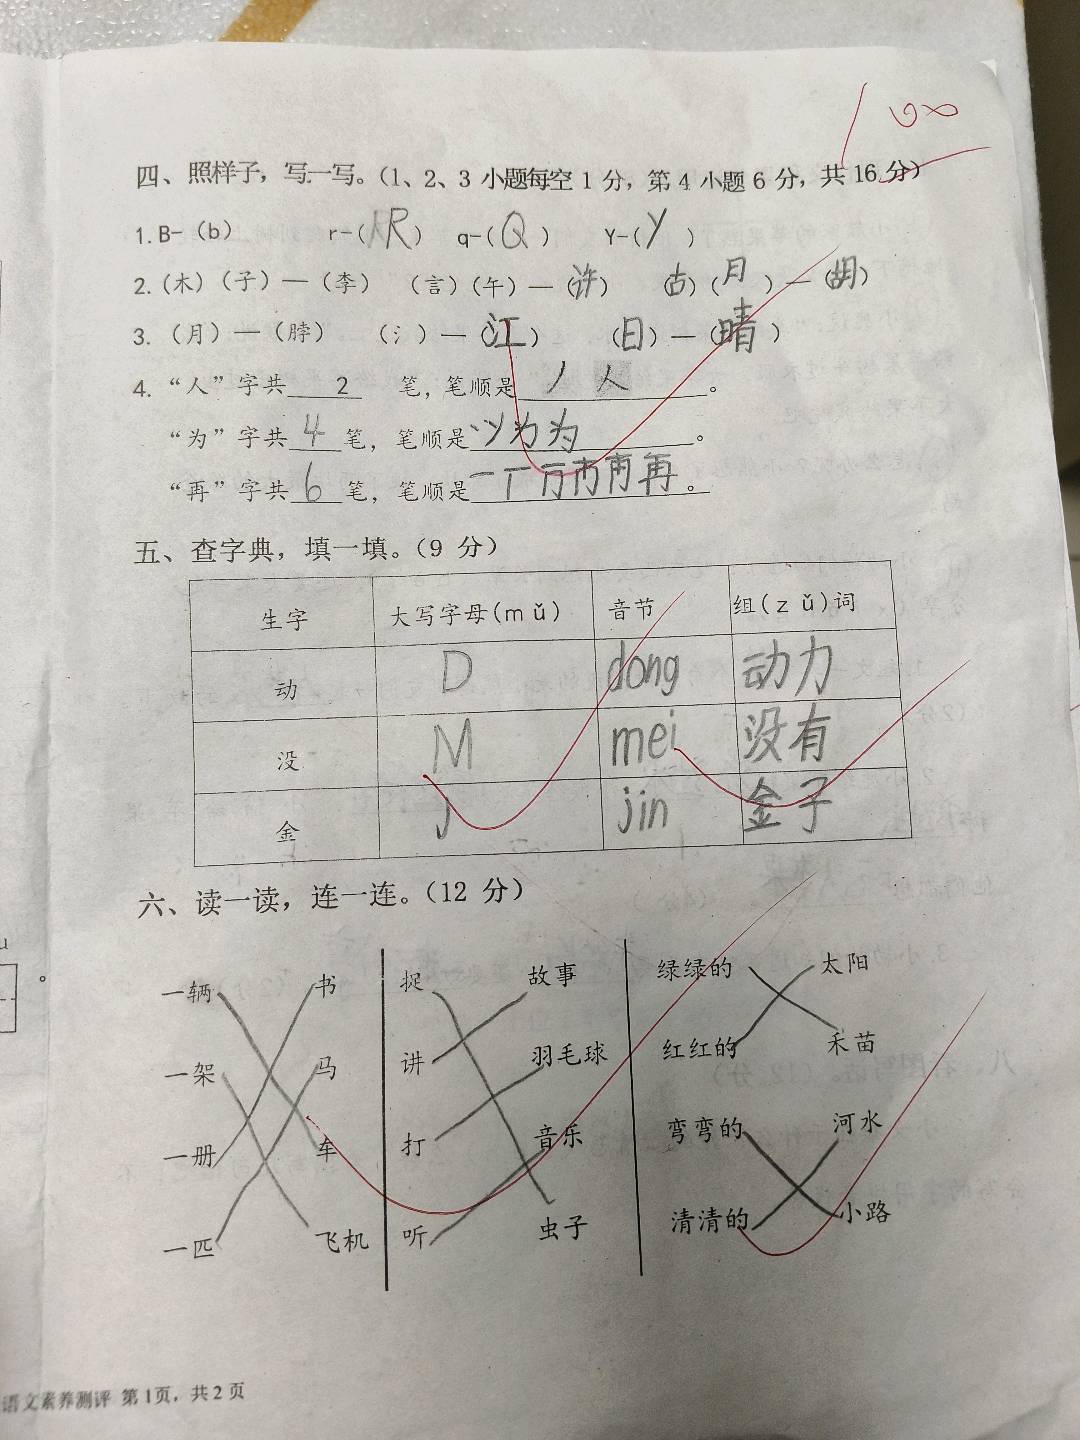 100
四、照样子，写一写。（1、2、3 小题每空 1 分，第 4 小题 6 分，共 16 分）
1. B-（b） r-（R） q-（Q） Y-（y）
2.（木）（子）—（李） （言）（午）—（许） （古）（月）—（胡）
3.（月）—（脖） （氵）—（江） （日）—（晴）
4.“人”字共 2 笔，笔顺是丿 人。
“为”字共 4 笔，笔顺是丶ソ为为。
“再”字共 6 笔，笔顺是一丅冂再。
五、查字典，填一填。（9 分）
生字 大写字母(mǔ) 音节 组(zǔ)词
动 D dong 动力
没 M mei 没有
金 J jin 金子
六、读一读，连一连。（12 分）
一辆 书 捉 故事 绿绿的 太阳
一架 马 讲 羽毛球 红红的 禾苗
一册 车 打 音乐 弯弯的 河水
一匹 飞机 听 虫子 清清的 小路
语文素养测评 第1页，共2页